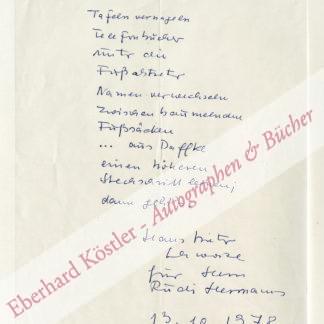 Tafeln vernageln
Telefonbücher
unter die
Fußabtreter
Namen verwechseln
zwischen baumelnden
Fußsäcken
... aus Daffke
einen höheren
dann
Hans Dieter
für Herrn
Rudi Hermanns
13.10.1978
Eberhard Köstler - Autographen & Bücher